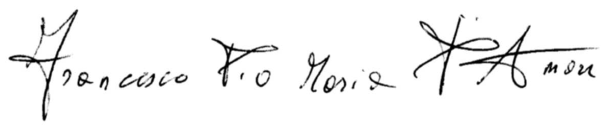 Francesco Pio Maria D'Amore